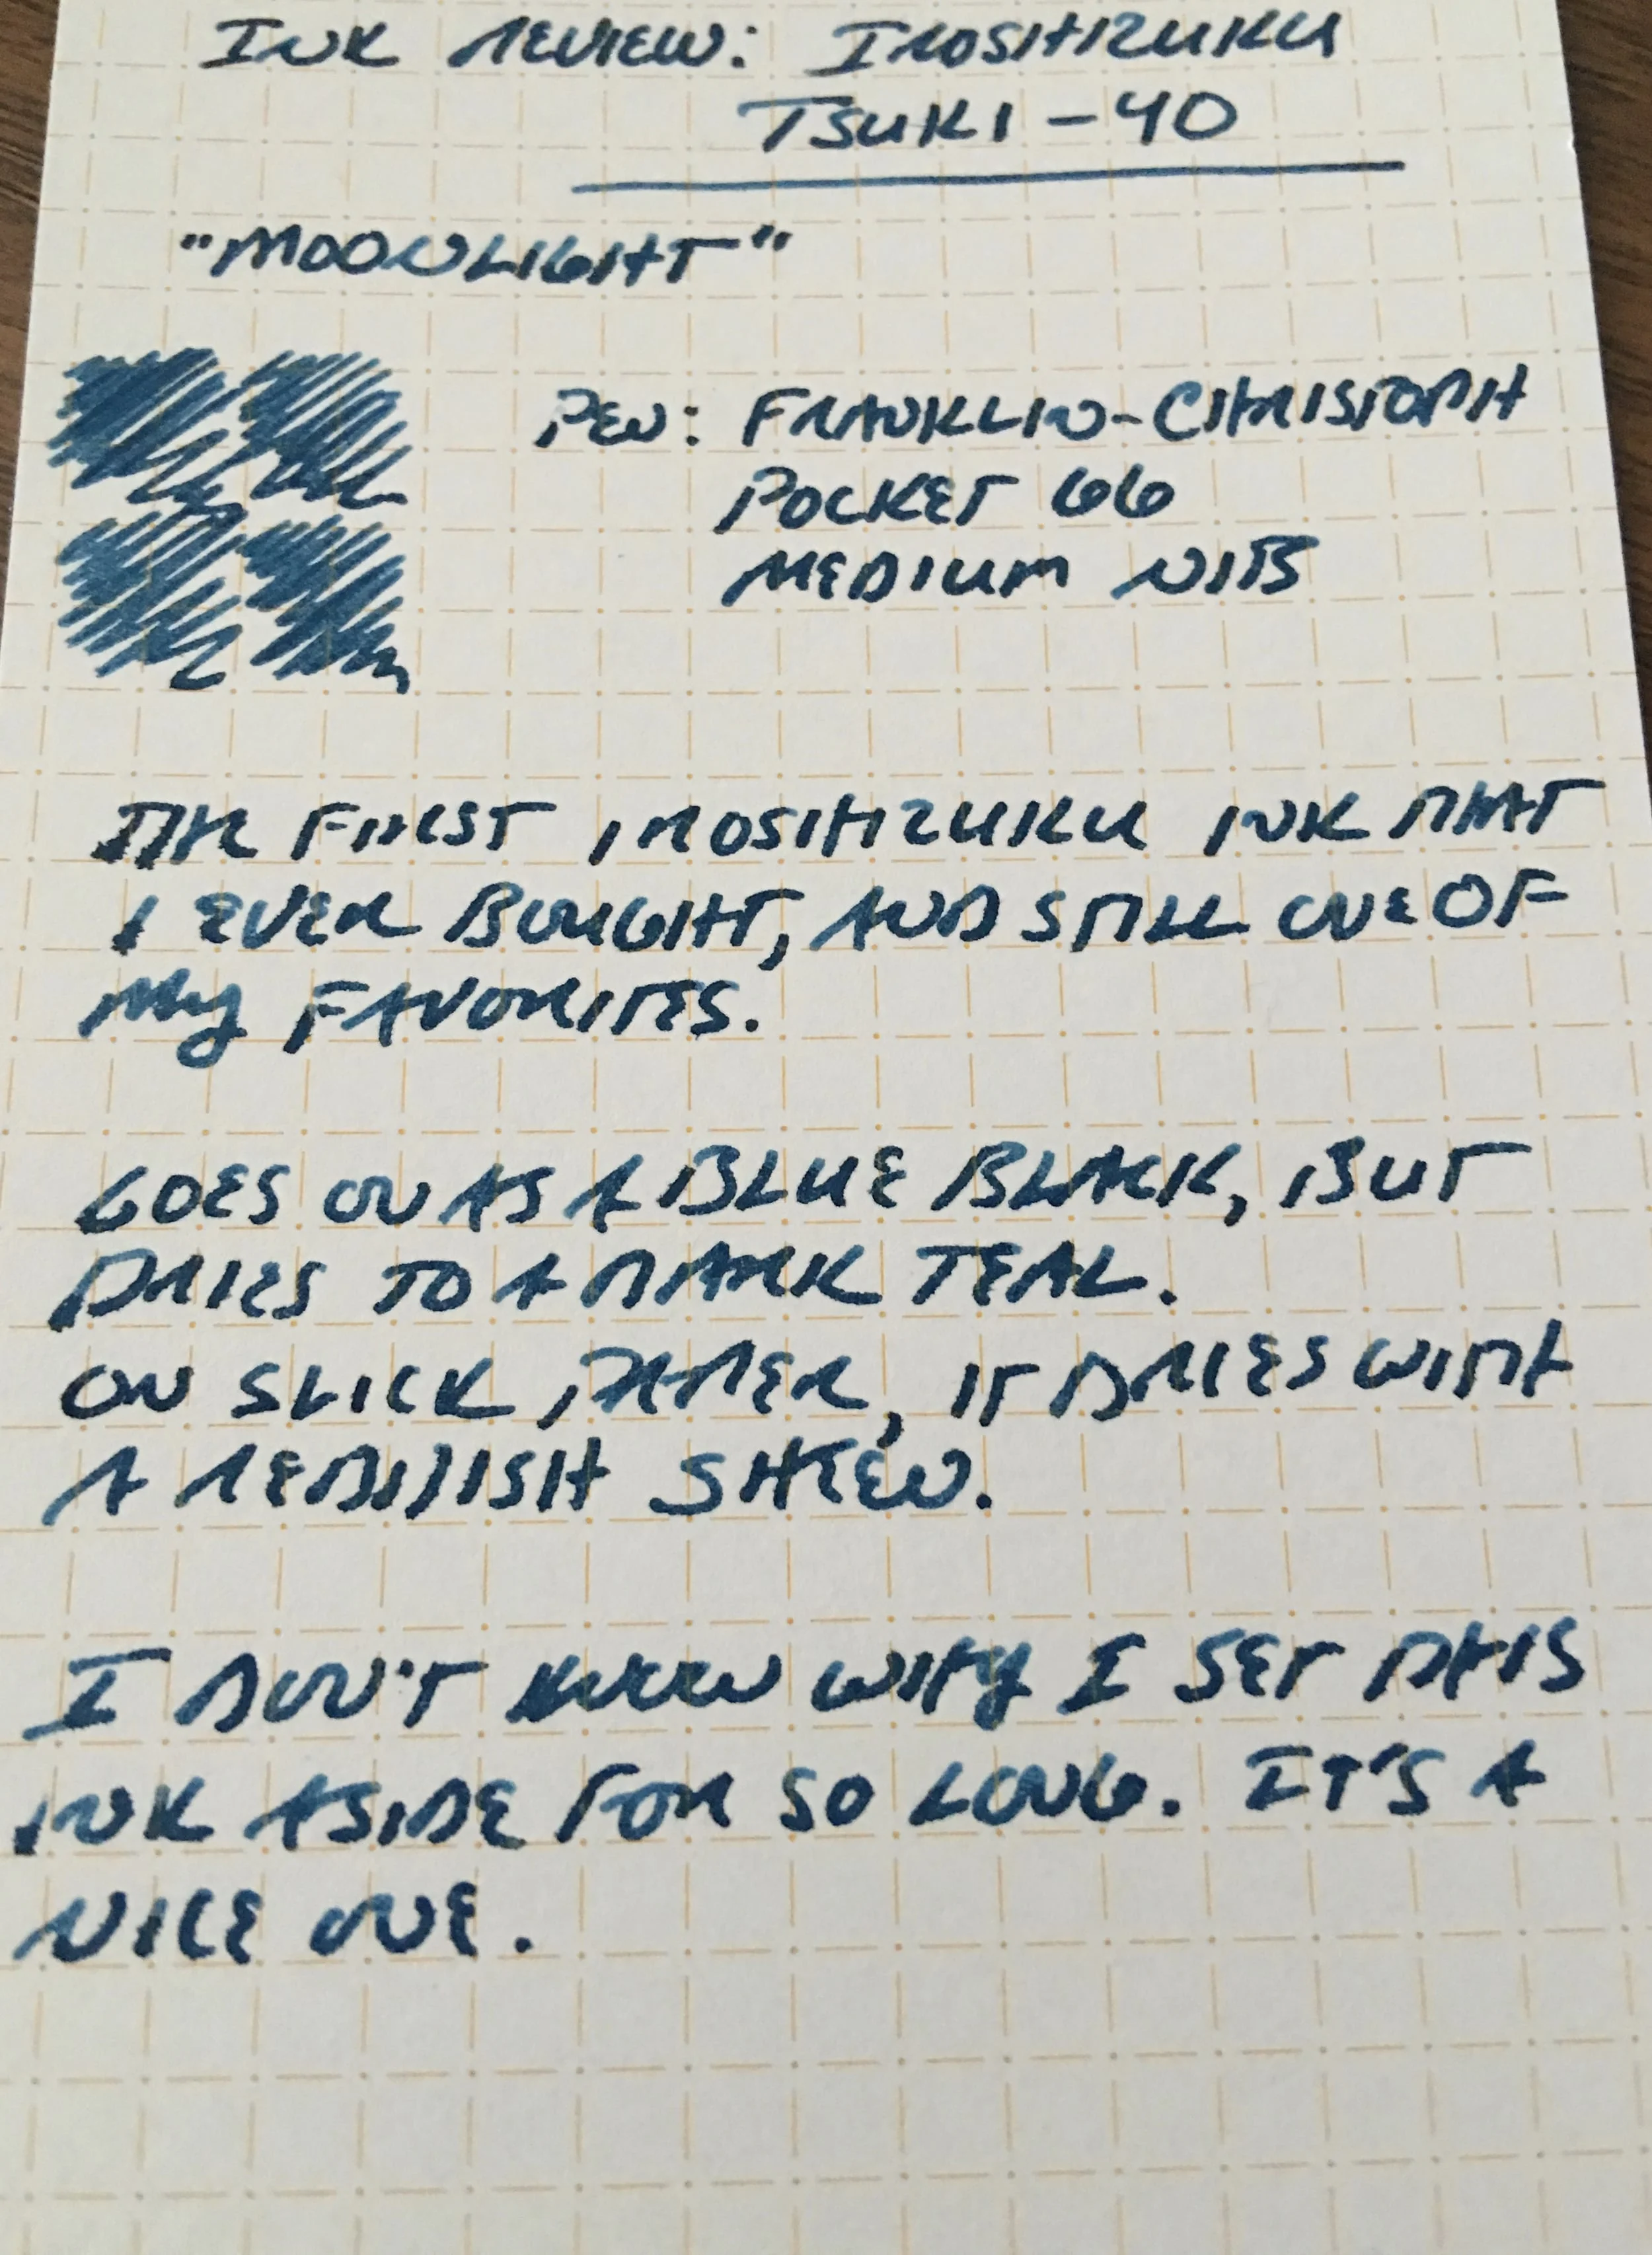 INK REVIEW: IROSHIZUKU
TSUKI-YO
"MOONLIGHT"
PEN: FRANKLIN-CHRISTOPH
POCKET 66
MEDIUM NIB
THE FIRST IROSHIZUKU INK THAT
I EVER BOUGHT, AND STILL ONE OF
MY FAVORITES.
GOES ON AS A BLUE BLACK, BUT
DRIES TO A DARK TEAL.
ON SLICK PAPER, IT DRIES WITH
A REDDISH SHEEN.
I DON'T KNOW WHY I SET THIS
INK ASIDE FOR SO LONG. IT'S A
NICE ONE.